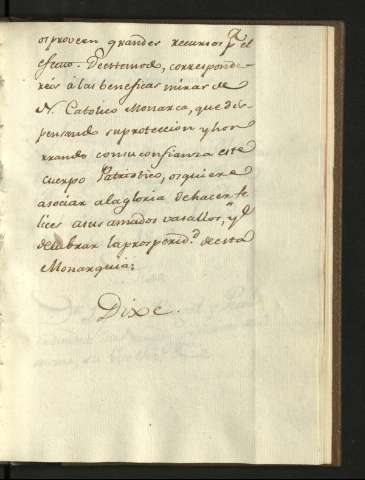 os proveen grandes recursos p.ª el
efecto. De este modo, corresponde-
reis à las beneficas miras de
N. Catolico Monarca, que dis-
pensando su protección y hon
rrando con su confianza este
cuerpo Patriotico, os quiere
asociar a la gloria de hacer fe
lices a sus amados vasallos, y
de labrar la prosperid.d de esta
Monarquia:
Dixe.